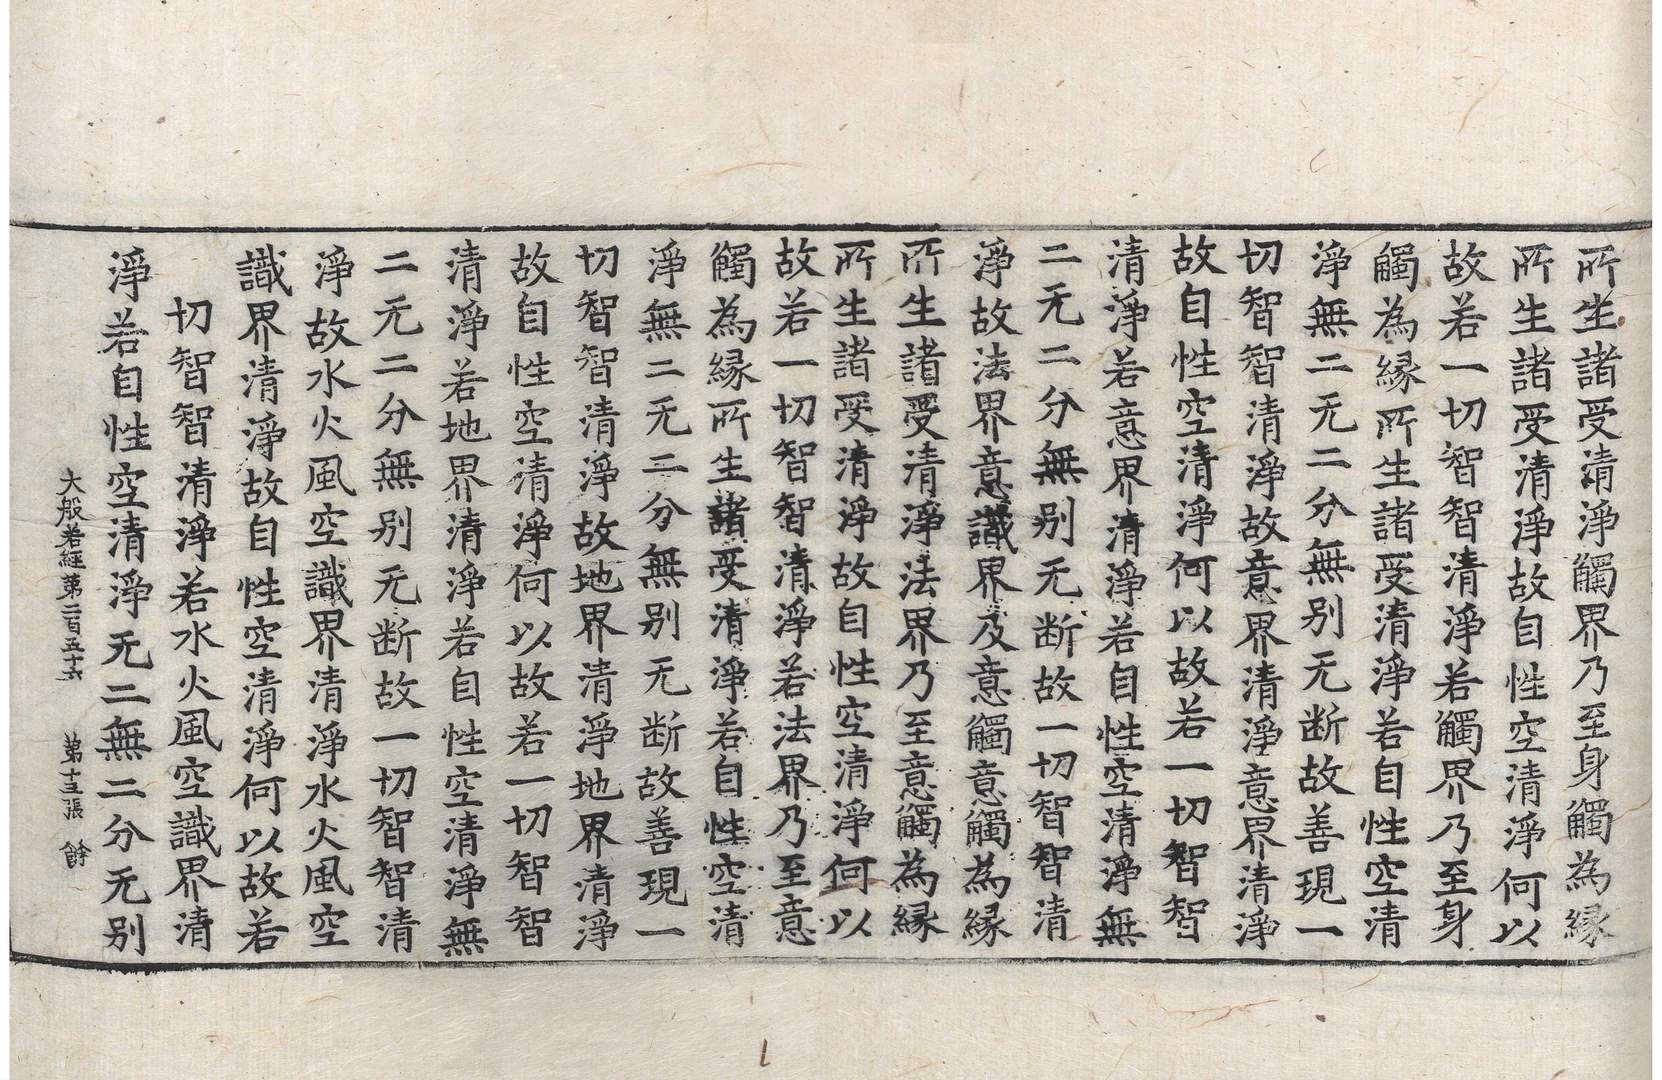 所生諸受清淨觸界乃至身觸為縁
所生諸受清淨故自性空清淨何以
故若一切智智清淨若觸界乃至身
觸為縁所生諸受清淨若自性空清
淨無二无二分無别无断故善現一
切智智清淨故意界清淨意界清淨
故自性空清淨何以故若一切智智
清淨若意界清淨若自性空清淨無
二无二分無别无断故一切智智清
淨故法界意識界及意觸意觸為縁
所生諸受清淨法界乃至意觸為縁
所生諸受清淨故自性空清淨何以
故若一切智智清淨若法界乃至意
觸為縁所生諸受清淨若自性空清
淨無二无二分無别无断故善現一
切智智清淨故地界清淨地界清淨
故自性空清淨何以故若一切智智
清淨若地界清淨若自性空清淨無
二无二分無别无断故一切智智清
淨故水火風空識界清淨水火風空
識界清淨故自性空清淨何以故若
切智智清淨若水火風空識界清
淨若自性空清淨无二無二分无别
大般若經第二百五十六 第十三張 餘